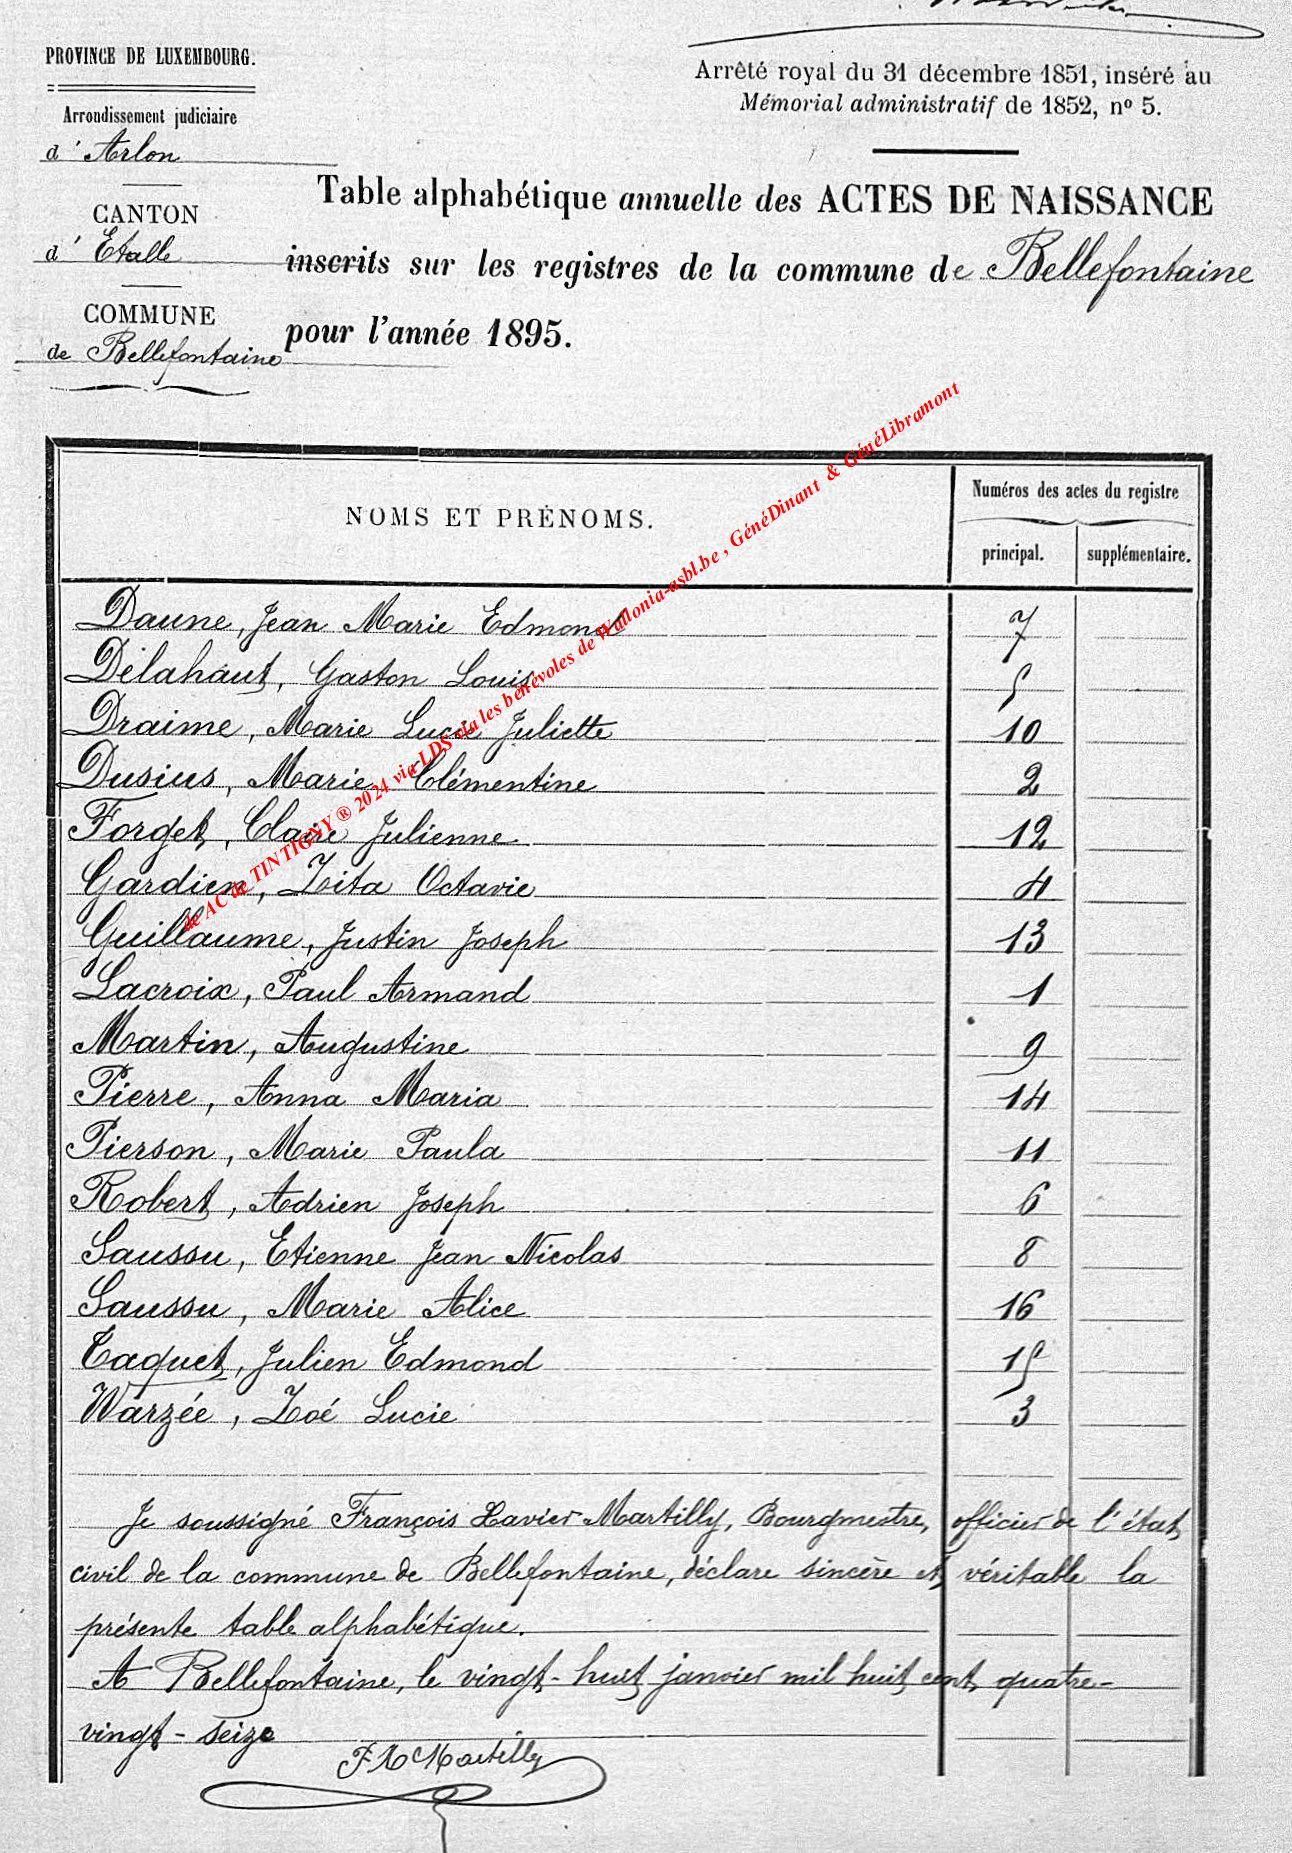 PROVINCE DE LUXEMBOURG.
Arrondissement judiciaire
d' Arlon
CANTON
d' Etalle
COMMUNE
de Bellefontaine
Arrêté royal du 31 décembre 1851, inséré au
Mémorial administratif de 1852, nº 5.
Table alphabétique annuelle des ACTES DE NAISSANCE
inscrits sur les registres de la commune de Bellefontaine
pour l'année 1895.
NOMS ET PRÉNOMS.
Numéros des actes du registre
principal. supplémentaire.
Daune, Jean Marie Edmond 7
Délahaut, Gaston Louis 5
Draime, Marie Lucie Juliette 10
Dusius, Marie Clémentine 2
Forget, Claire Julienne 12
Gardien, Zita Octavie 4
Guillaume, Justin Joseph 13
Lacroix, Paul Armand 1
Martin, Augustine 9
Pierre, Anna Maria 14
Pierson, Marie Paula 11
Robert, Adrien Joseph 6
Saussu, Etienne Jean Nicolas 8
Saussu, Marie Alice 16
Taquet, Julien Edmond 15
Warzée, Zoé Lucie 3
Je soussigné François Xavier Martilly, Bourgmestre, officier de l'état
civil de la commune de Bellefontaine, déclare sincère et véritable la
présente table alphabétique.
A Bellefontaine, le vingt-huit janvier mil huit cent quatre-
vingt-seize
FX Martilly
de AC de TINTIGNY ® 2024 via LDS via les bénévoles de Wallonia-asbl.be , GénéDinant & GénéLibramont